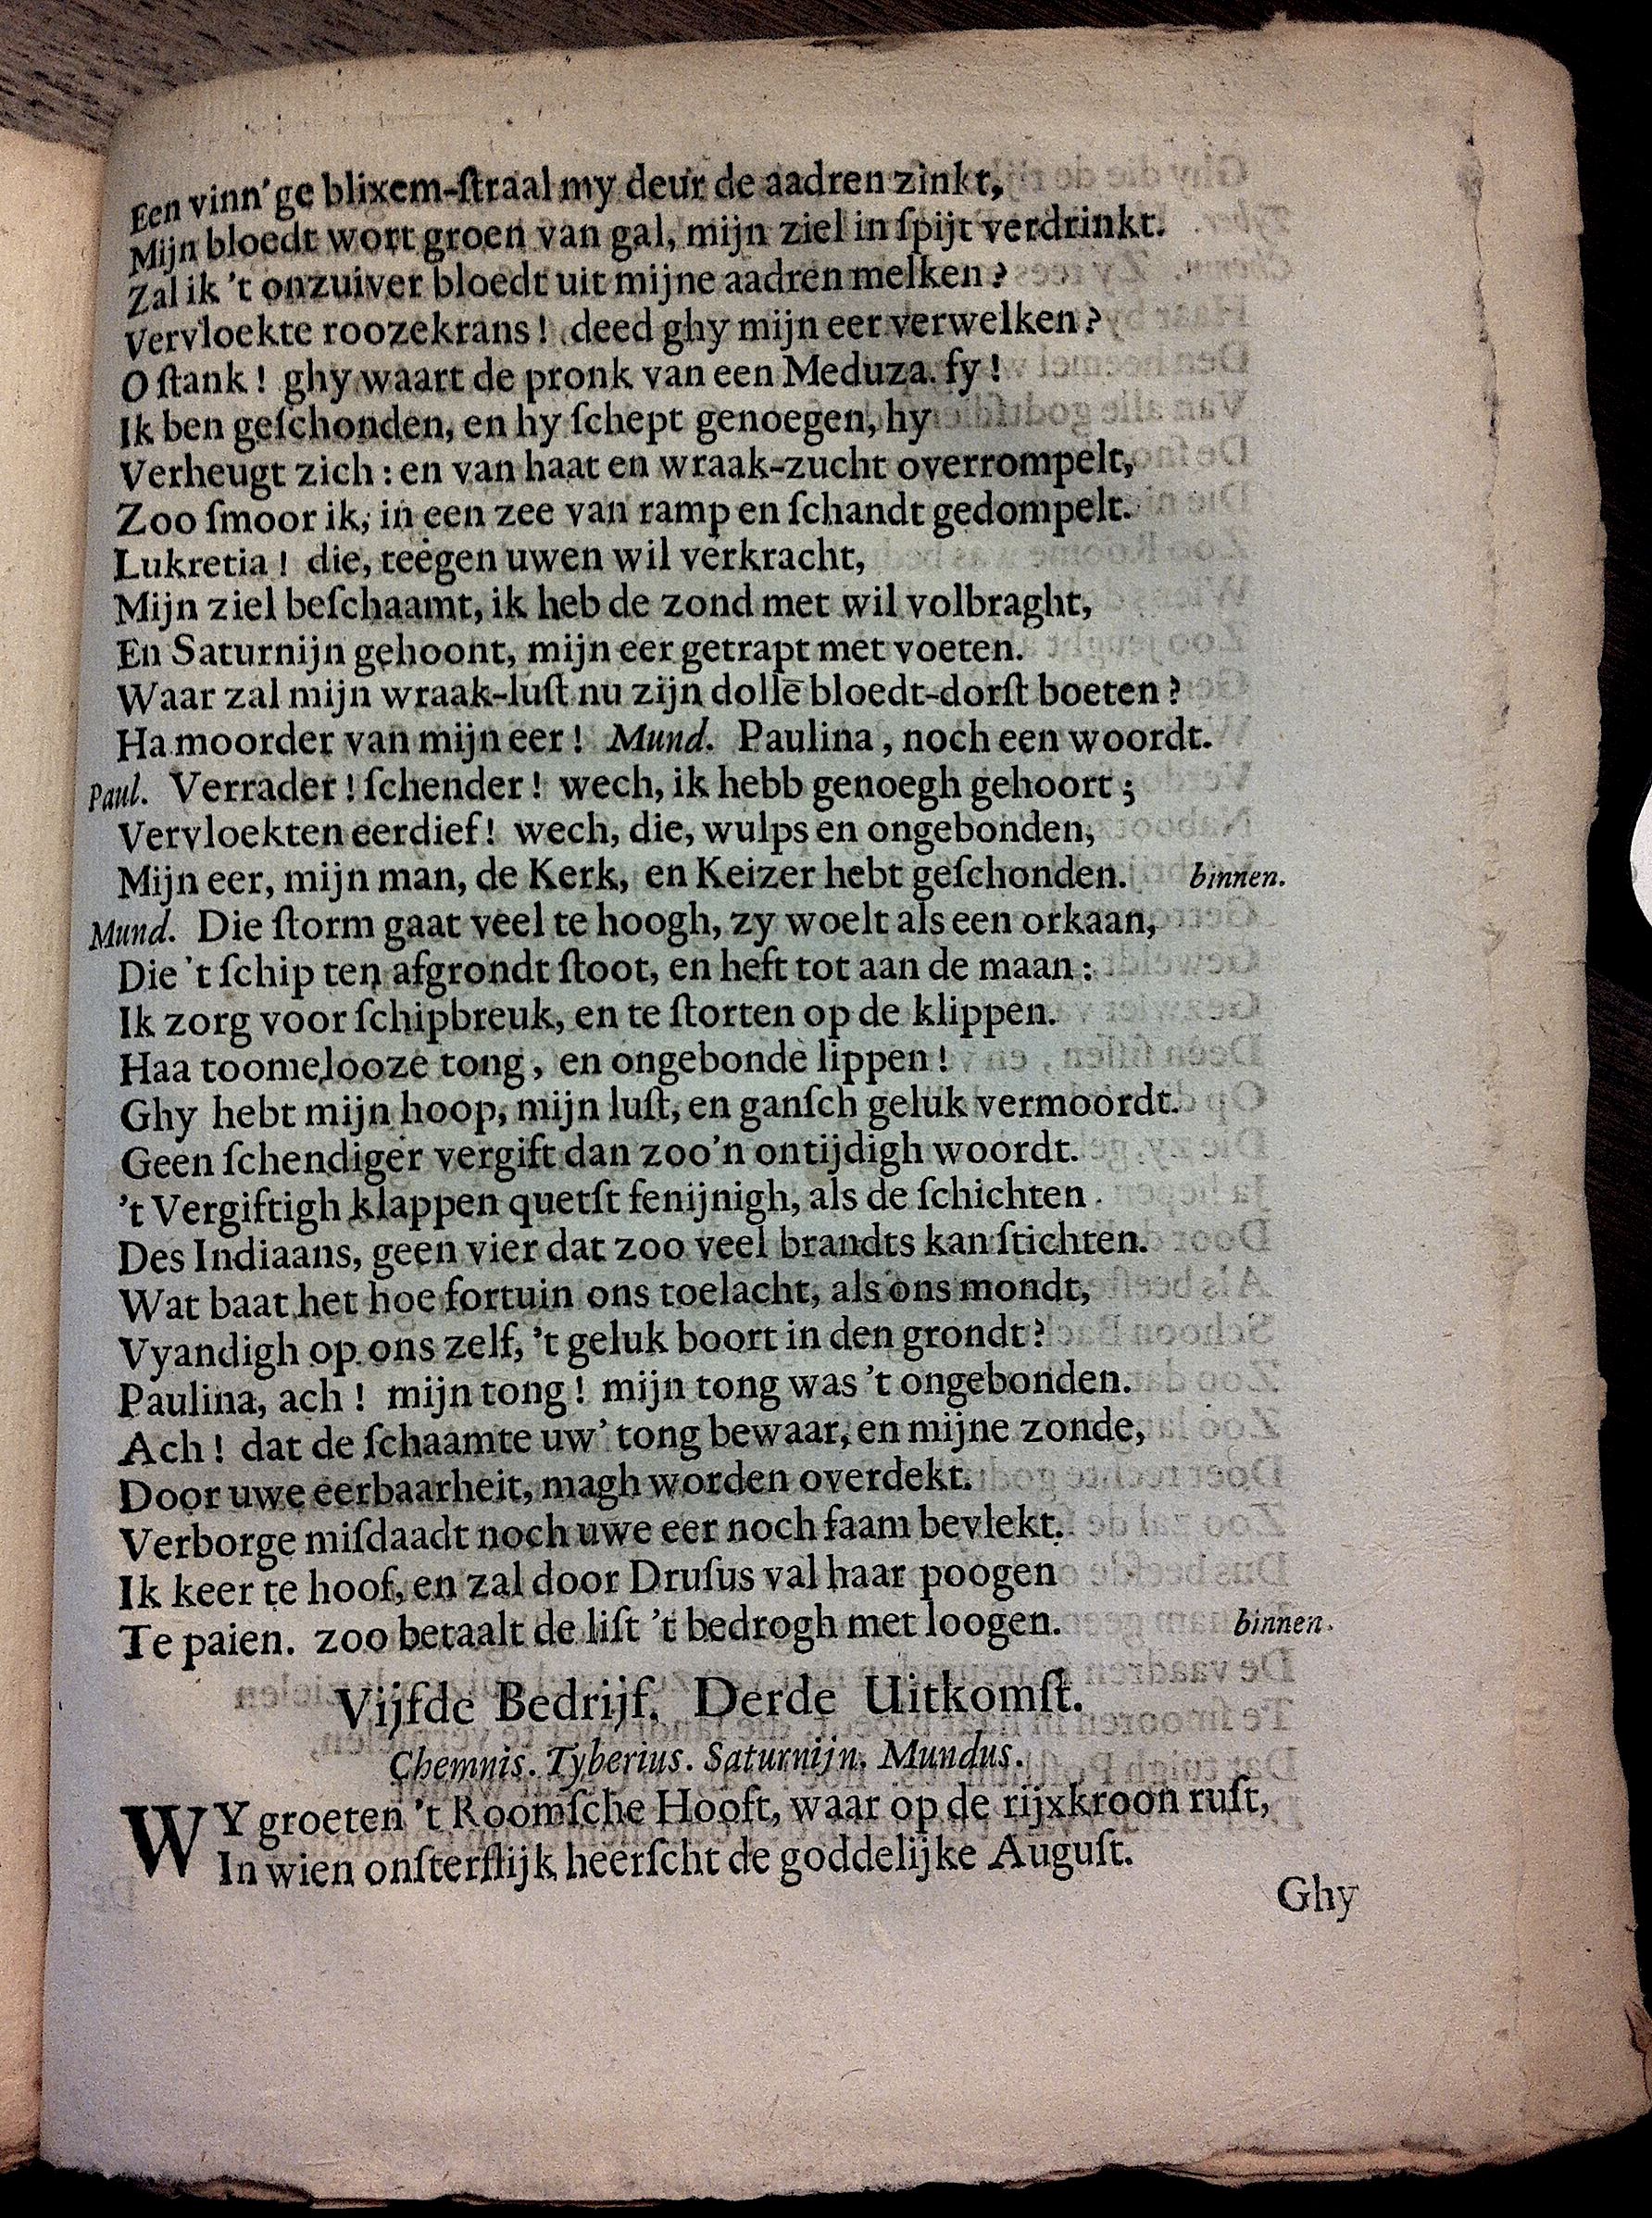 Een vinn'ge blixem-ſtraal my deur de aadren zinkt,
Mijn bloedt wort groen van gal, mijn ziel in ſpijt verdrinkt.
Zal ik 't onzuiver bloedt uit mijne aadren melken?
Vervloekte roozekrans! deed ghy mijn eer verwelken?
O ſtank! ghy waart de pronk van een Meduza. fy!
Ik ben geſchonden, en hy ſchept genoegen, hy
Verheugt zich: en van haat en wraak-zucht overrompelt,
Zoo ſmoor ik, in een zee van ramp en ſchandt gedompelt.
Lukretia! die, teegen uwen wil verkracht,
Mijn ziel beſchaamt, ik heb de zond met wil volbraght,
En Saturnijn gehoont, mijn eer getrapt met voeten.
Waar zal mijn wraak-luſt nu zijn dolle bloedt-dorſt boeten?
Ha moorder van mijn eer! Mund. Paulina, noch een woordt.
Paul. Verrader! ſchender! wech, ik hebb genoegh gehoort;
Vervloekten eerdief! wech, die, wulps en ongebonden,
Mijn eer, mijn man, de Kerk, en Keizer hebt geſchonden. binnen.
Mund. Die ſtorm gaat veel te hoogh, zy woelt als een orkaan,
Die 't ſchip ten afgrondt ſtoot, en heft tot aan de maan:
Ik zorg voor ſchipbreuk, en te ſtorten op de klippen.
Haa toomelooze tong, en ongebonde lippen!
Ghy hebt mijn hoop, mijn luſt, en ganſch geluk vermoordt.
Geen ſchendiger vergift dan zoo'n ontijdigh woordt.
't Vergiftigh klappen quetſt fenijnigh, als de ſchichten
Des Indiaans, geen vier dat zoo veel brandts kan ſtichten.
Wat baat het hoe fortuin ons toelacht, als ons mondt,
Vyandigh op ons zelf, 't geluk boort in den grondt?
Paulina, ach! mijn tong! mijn tong was 't ongebonden.
Ach! dat de ſchaamte uw' tong bewaar, en mijne zonde,
Door uwe eerbaarheit, magh worden overdekt.
Verborge miſdaadt noch uwe eer noch faam bevlekt.
Ik keer te hoof, en zal door Druſus val haar poogen
Te paien. zoo betaalt de liſt 't bedrogh met loogen. binnen.
Vijfde Bedrijf. Derde Uitkomſt.
Chemnis. Tyberius. Saturnijn. Mundus.
WY groeten 't Roomſche Hooft, waar op de rijxkroon ruſt,
In wien onſterflijk heerſcht de goddelijke Auguſt.
Ghy